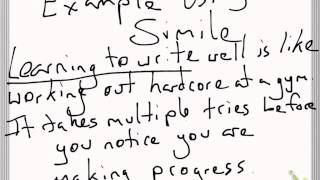 Example Using
Simile
Learning to write well is like
working out hardcore at a gym.
It takes multiple tries before
you notice you are
making progress.